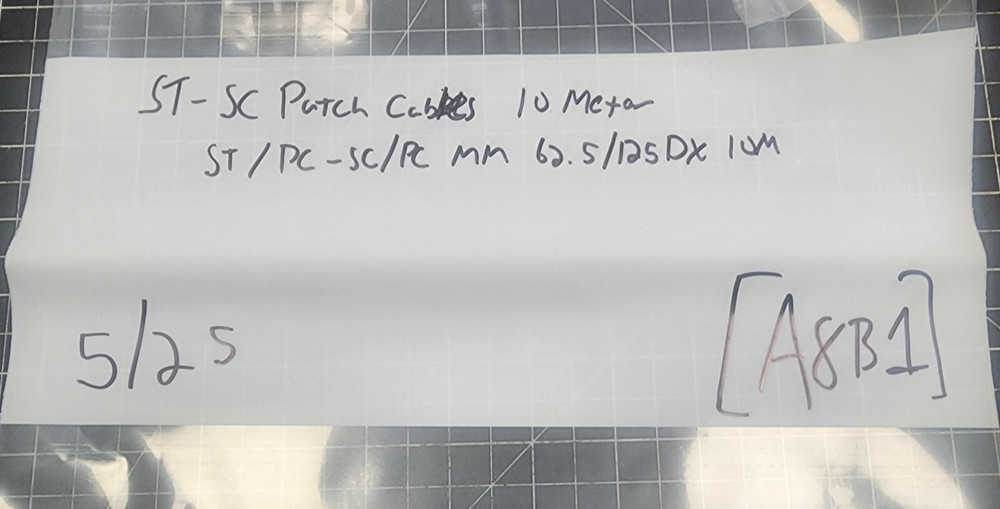 ST-SC Patch Cables 10 Meter
ST/PC-SC/PC MM 62.5/125 DX 10M
5/25
[A8B1]